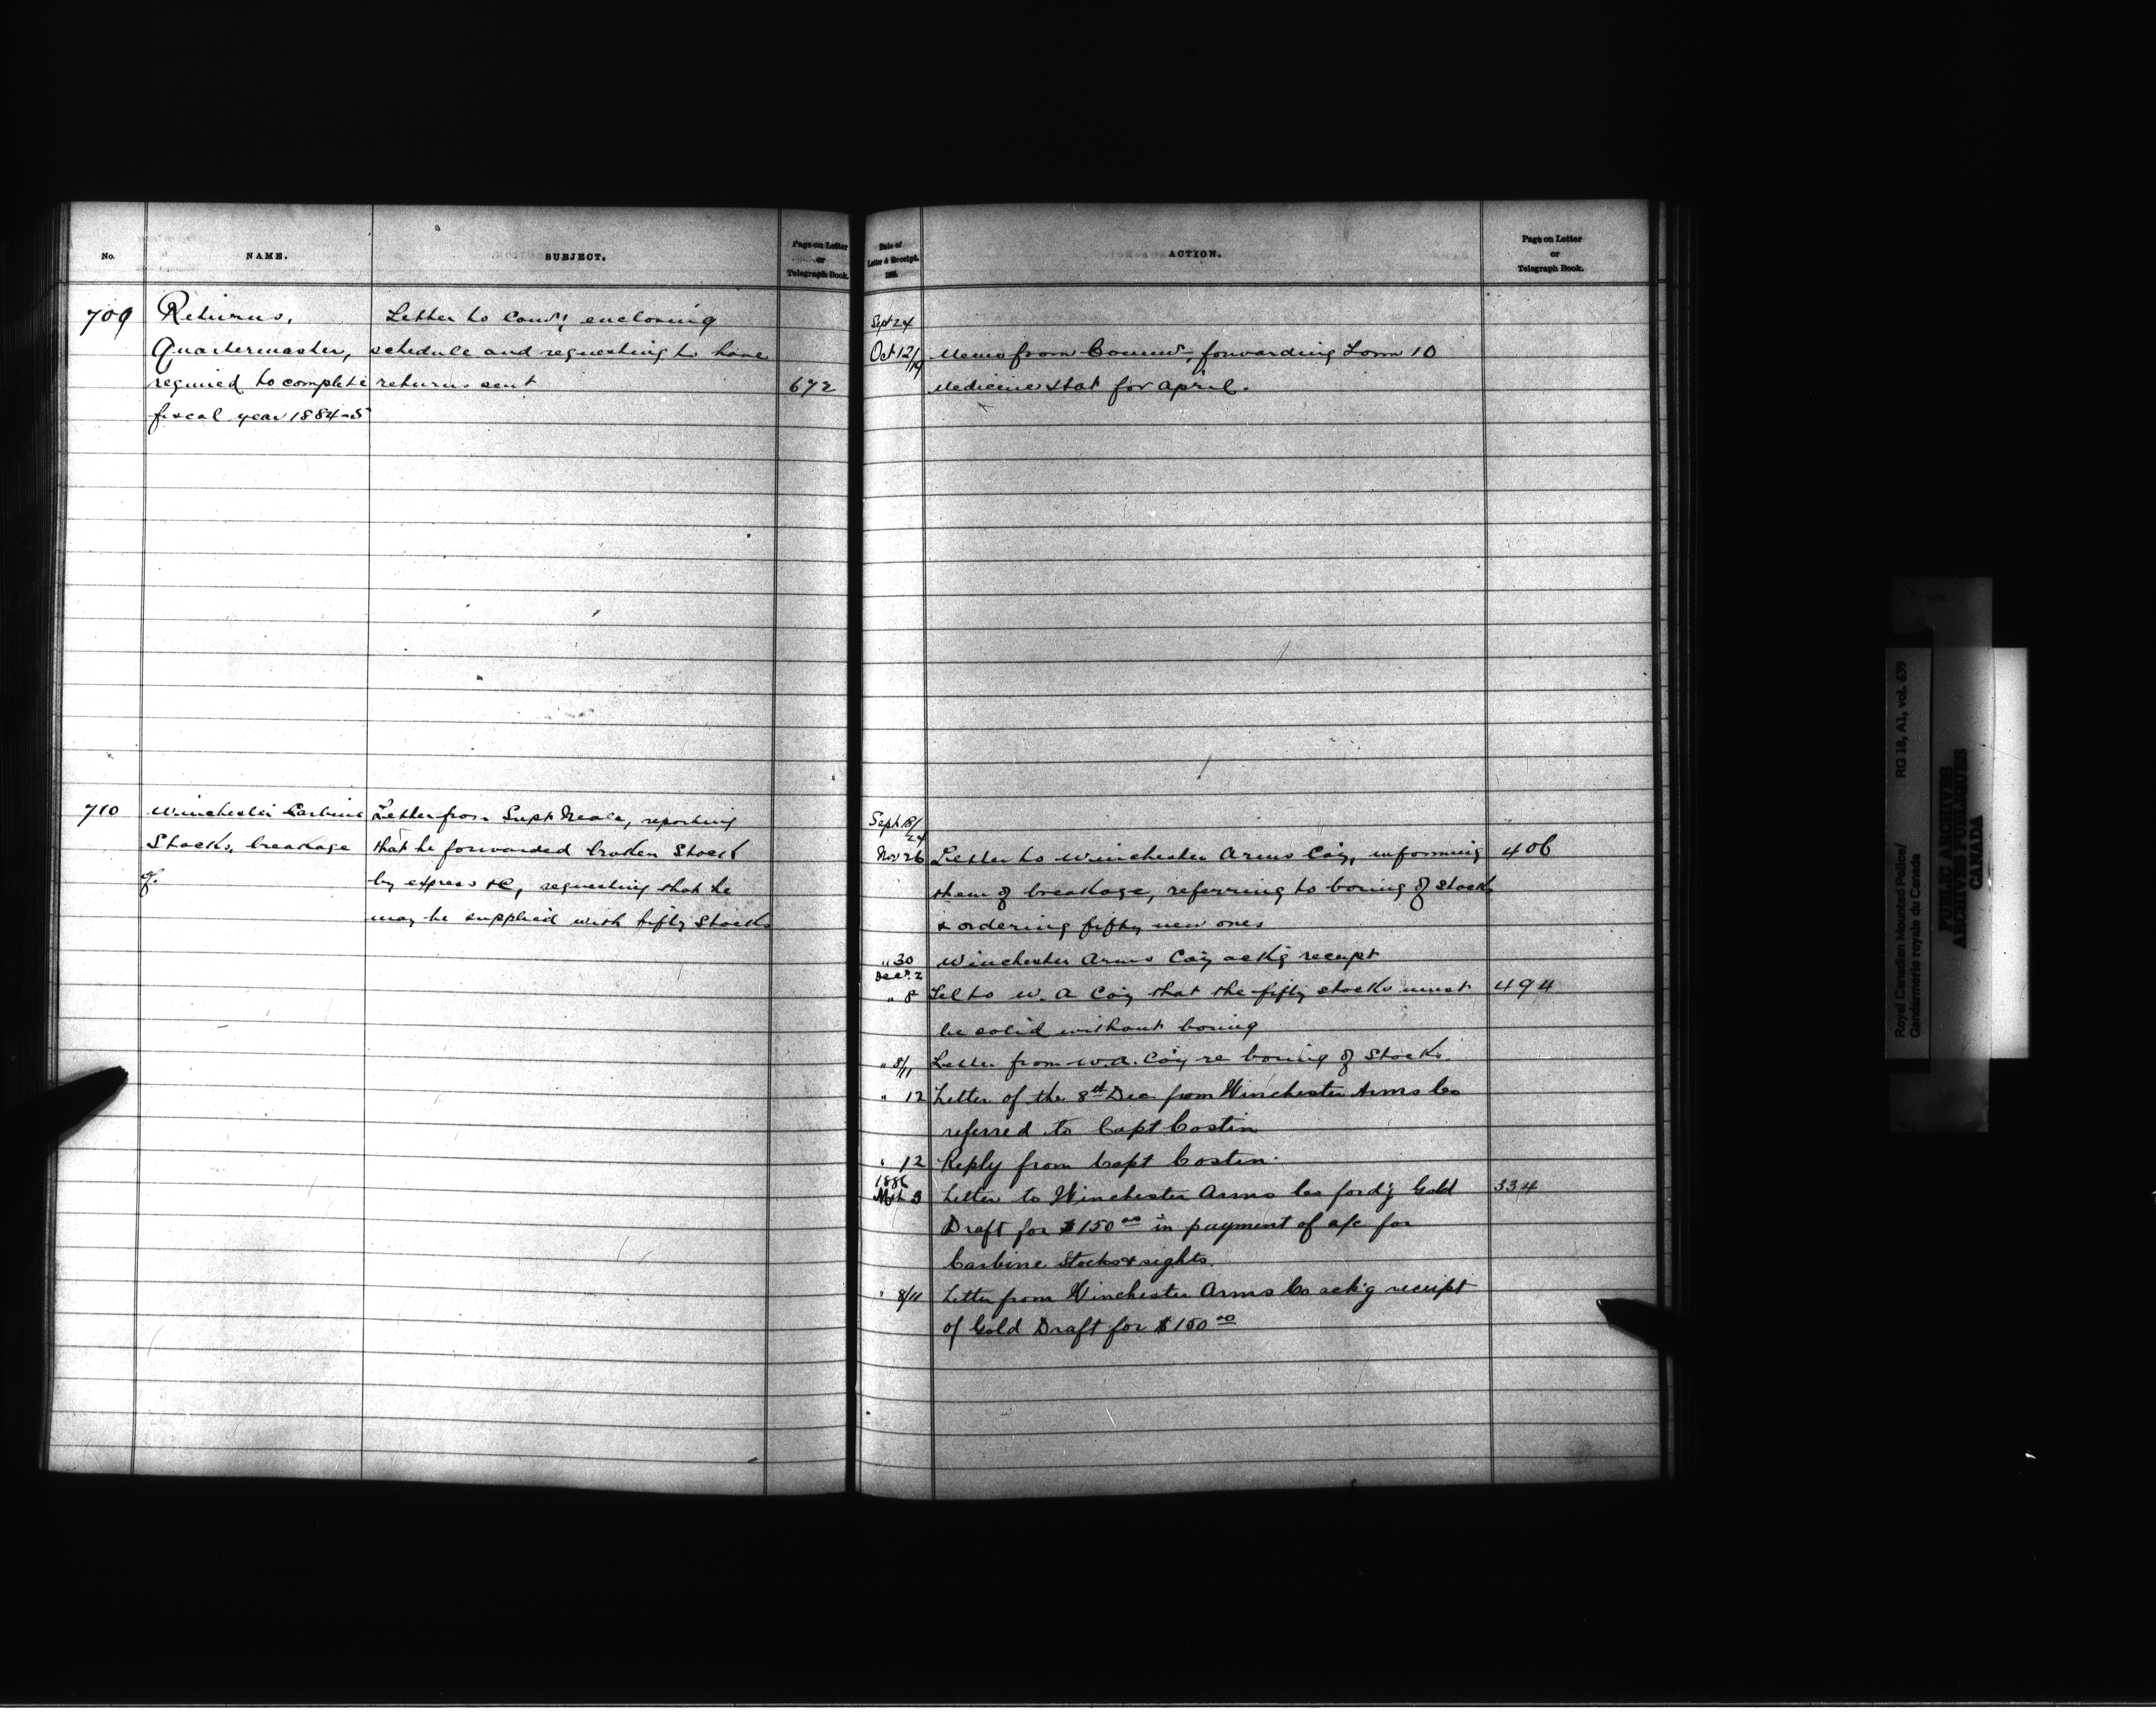 No.
NAME.
SUBJECT.
Page on Letter
or
Telegraph Book.
709
Returns,
Quartermaster,
required to complete
fiscal year 1884-5
Letter to Comr, enclosing
schedule and requesting to have
returns sent
672
710
Winchester Carbine
Stocks, breakage
of.
Letter from Supt Neale, reporting
that he forwarded broken Stock
by express &c, requesting that he
may be supplied with fifty Stocks
Date of
Letter & Receipt.
1885.
ACTION.
Page on Letter
or
Telegraph Book.
Sept 24
Oct 12/19 Memo from Commr, forwarding Form 10
Medicine Hat for April.
Sept 18/24
Nov 26 Letter to Winchester Arms Coy, informing 406
them of breakage, referring to boring of Stock
& ordering fifty new ones
" 30 Winchester Arms Coy ackg receipt
Decr. 2
" 8 Tel to W. A Coy that the fifty stocks must 494
be solid without boring
" 8/11 Letter from W.A. Coy re boring of Stocks.
" 12 Letter of the 8th Dec from Winchester Arms Co
referred to Capt Costin
" 12 Reply from Capt Costin.
1886
Mch 3 Letter to Winchester Arms Co ford'g Gold 334
Draft for $150 00 in payment of a/c for
Carbine Stocks & sights.
" 8/11 Letter from Winchester Arms Co ack'g receipt
of Gold Draft for $150 00
Royal Canadian Mounted Police/ RG 18, A1, vol. 639
Gendarmerie royale du Canada
PUBLIC ARCHIVES
ARCHIVES PUBLIQUES
CANADA